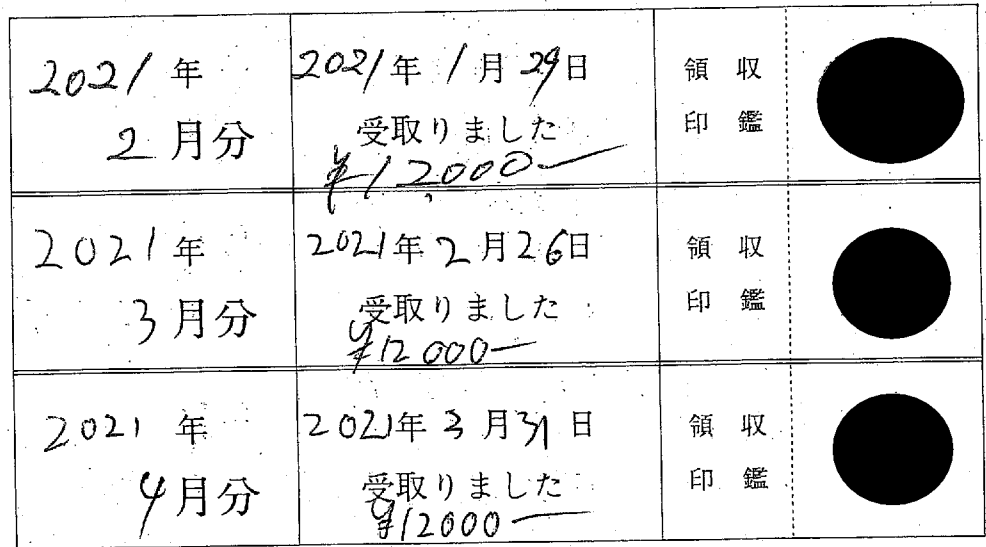 2021年
2月分
2021年1月29日
受取りました
¥12,000―
領収
印鑑
2021年
3月分
2021年2月26日
受取りました
¥12000―
領収
印鑑
2021年
4月分
2021年3月31日
受取りました
¥12000―
領収
印鑑